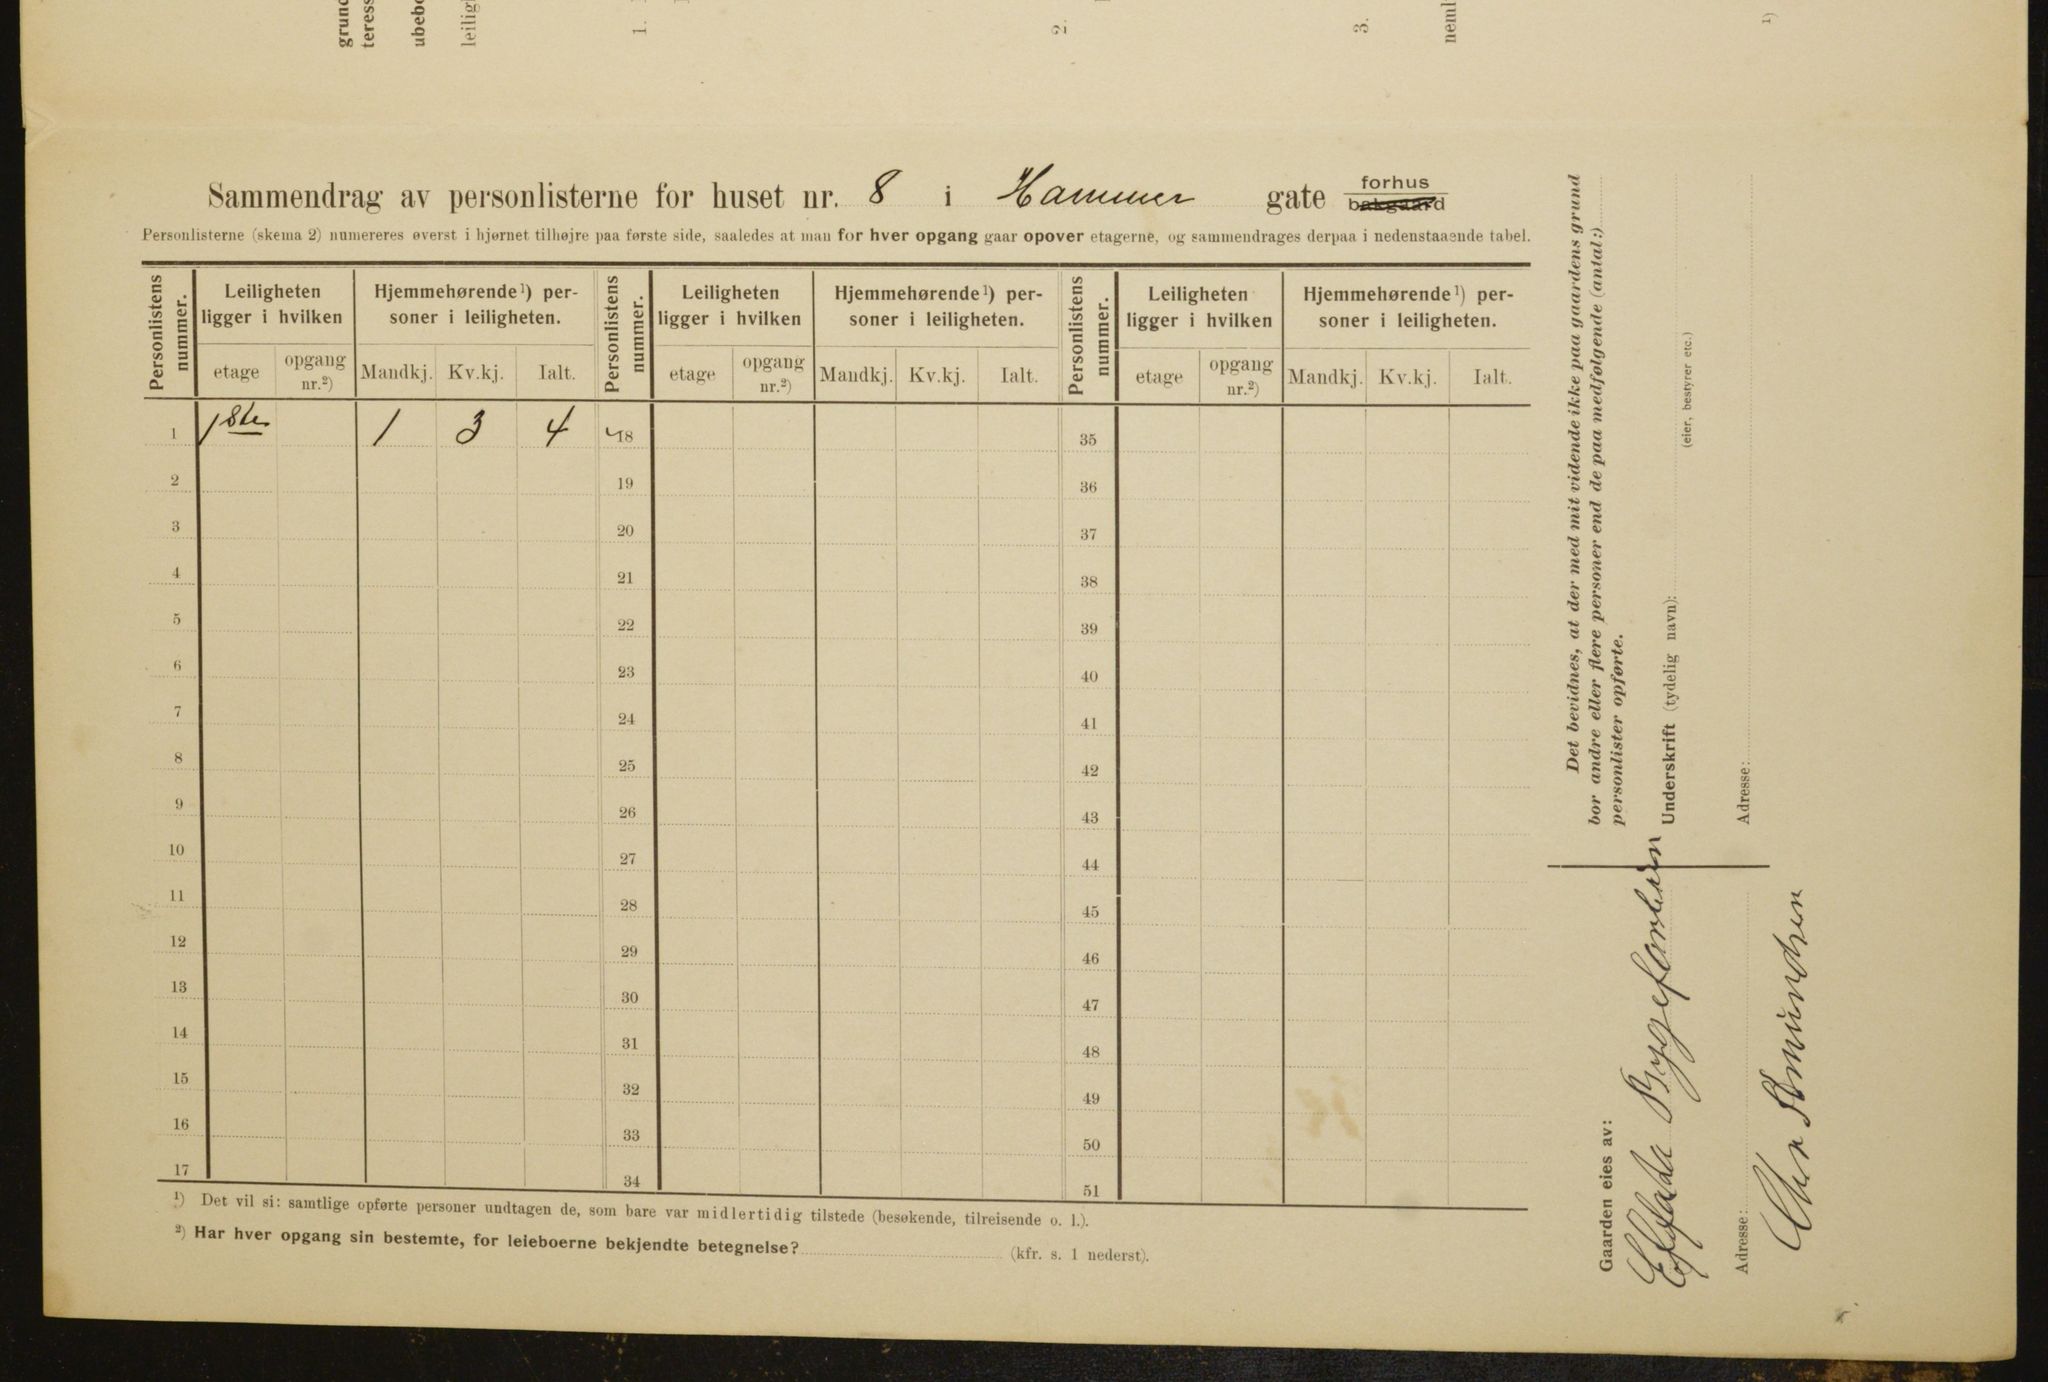 grund
teress
ubebo
leiligh
1.
2.
3.
neml
1)
Sammendrag av personlisterne for huset nr. 8 i Hammer gate forhus
bakgaard
Personlisterne (skema 2) numereres øverst i hjørnet tilhøjre paa første side, saaledes at man for hver opgang gaar opover etagerne, og sammendrages derpaa i nedenstaaende tabel.
Personlistens nummer. Leiligheten ligger i hvilken Hjemmehørende¹) personer i leiligheten. Personlistens nummer. Leiligheten ligger i hvilken Hjemmehørende¹) personer i leiligheten. Personlistens nummer. Leiligheten ligger i hvilken Hjemmehørende¹) personer i leiligheten.
etage opgang nr.²) Mandkj. Kv.kj. Ialt. etage opgang nr.²) Mandkj. Kv.kj. Ialt. etage opgang nr.²) Mandkj. Kv.kj. Ialt.
1 1ste 1 3 4 18 35
2 19 36
3 20 37
4 21 38
5 22 39
6 23 40
7 24 41
8 25 42
9 26 43
10 27 44
11 28 45
12 29 46
13 30 47
14 31 48
15 32 49
16 33 50
17 34 51
¹) Det vil si: samtlige opførte personer undtagen de, som bare var midlertidig tilstede (besøkende, tilreisende o. l.).
²) Har hver opgang sin bestemte, for leieboerne bekjendte betegnelse? (kfr. s. 1 nederst).
Det bevidnes, at der med mit vidende ikke paa gaardens grund
bor andre eller flere personer end de paa medfølgende (antal:)
personlister opførte.
Underskrift (tydelig navn):
(eier, bestyrer etc.)
Adresse:
Gaarden eies av:
Adresse: